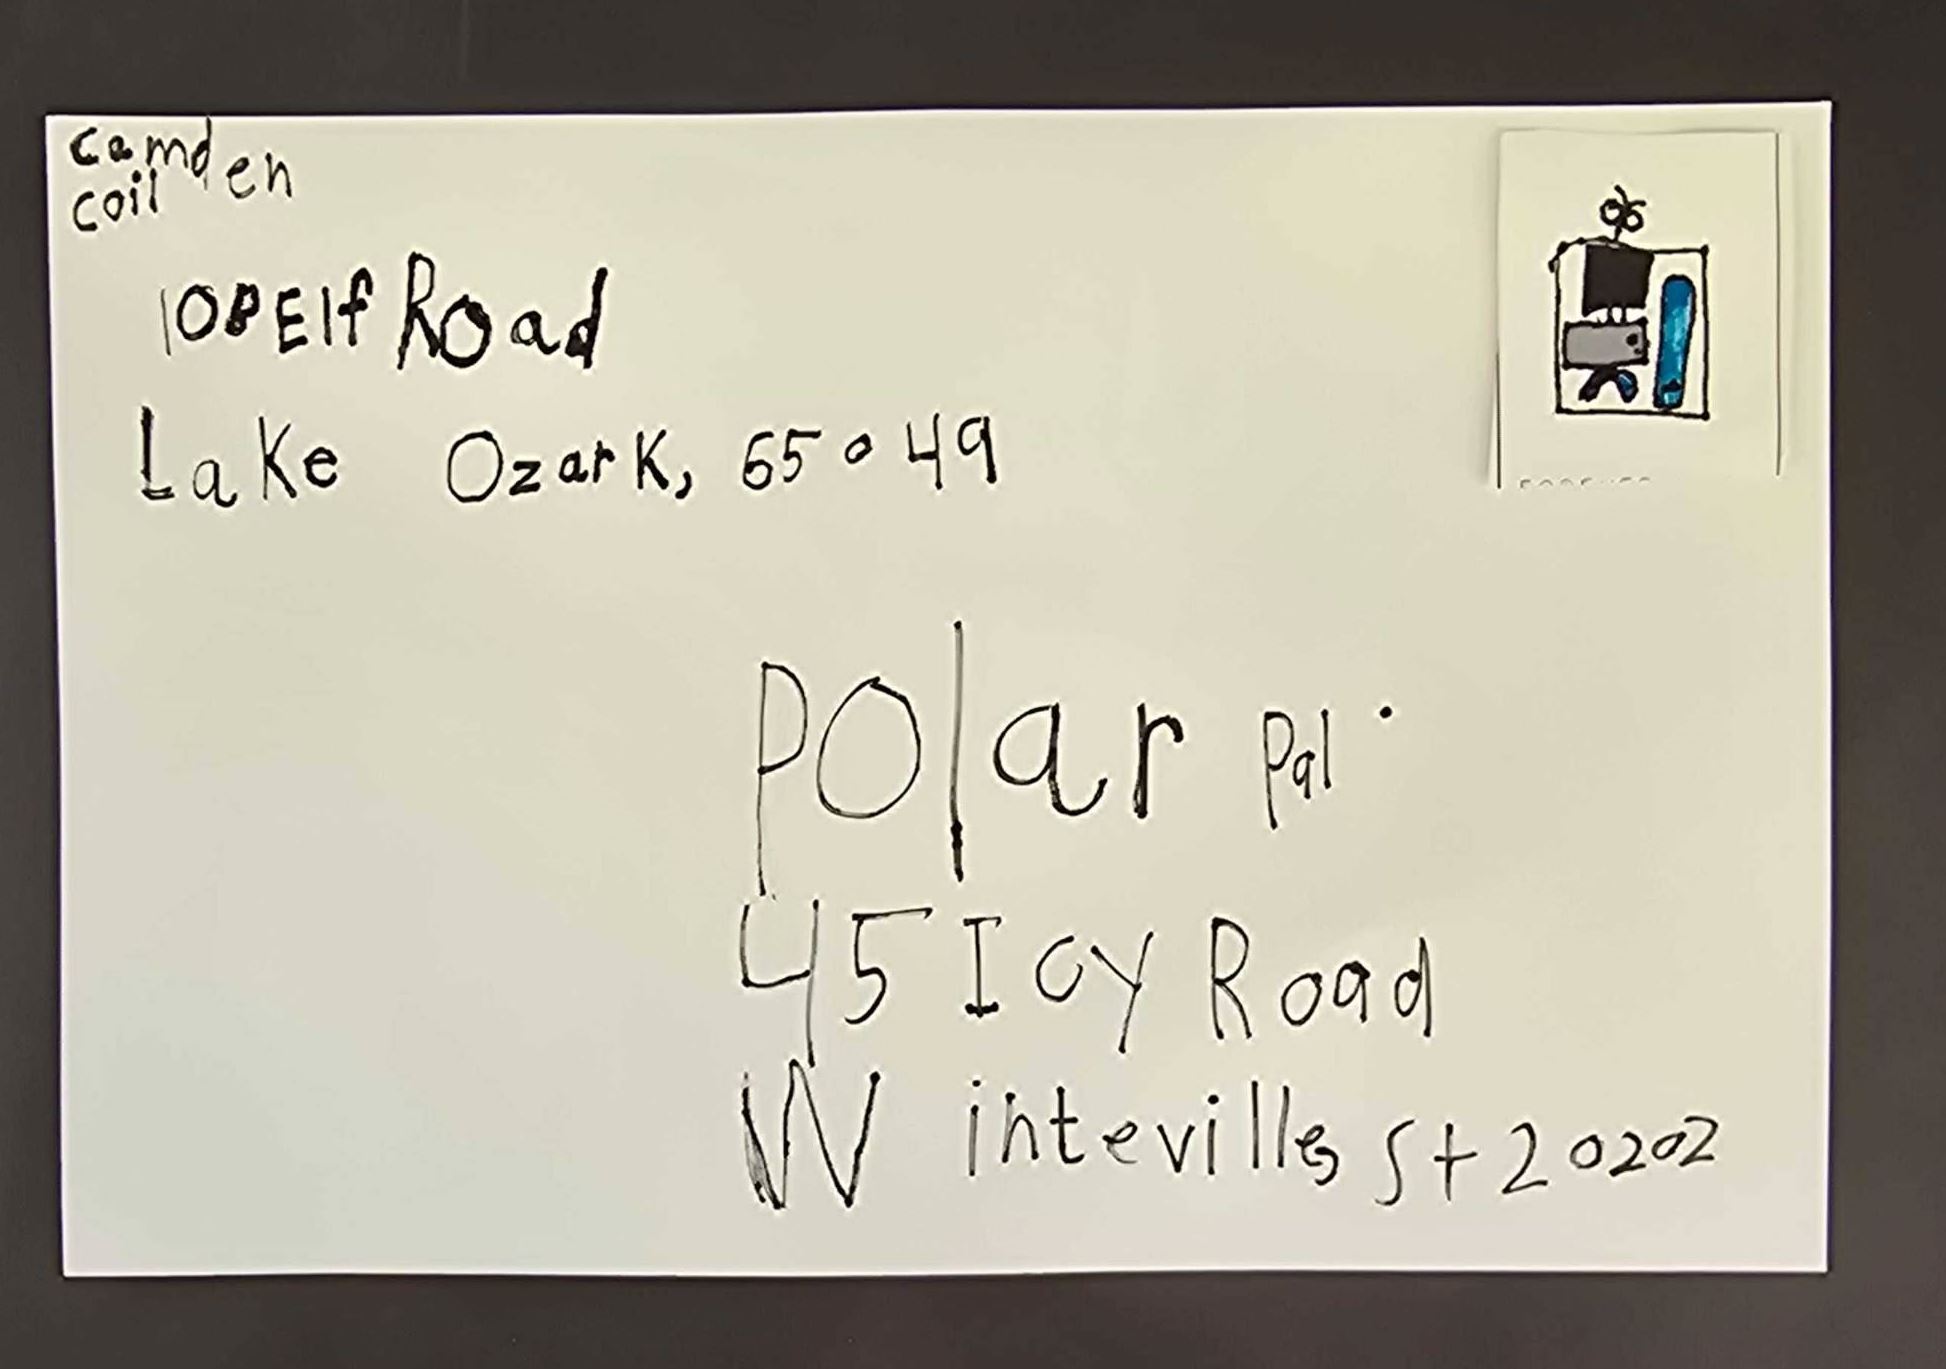 camden
coil
108 Elf Road
Lake Ozark, 65049
Polar Pal
45 Icy Road
Wintevilles St 20202